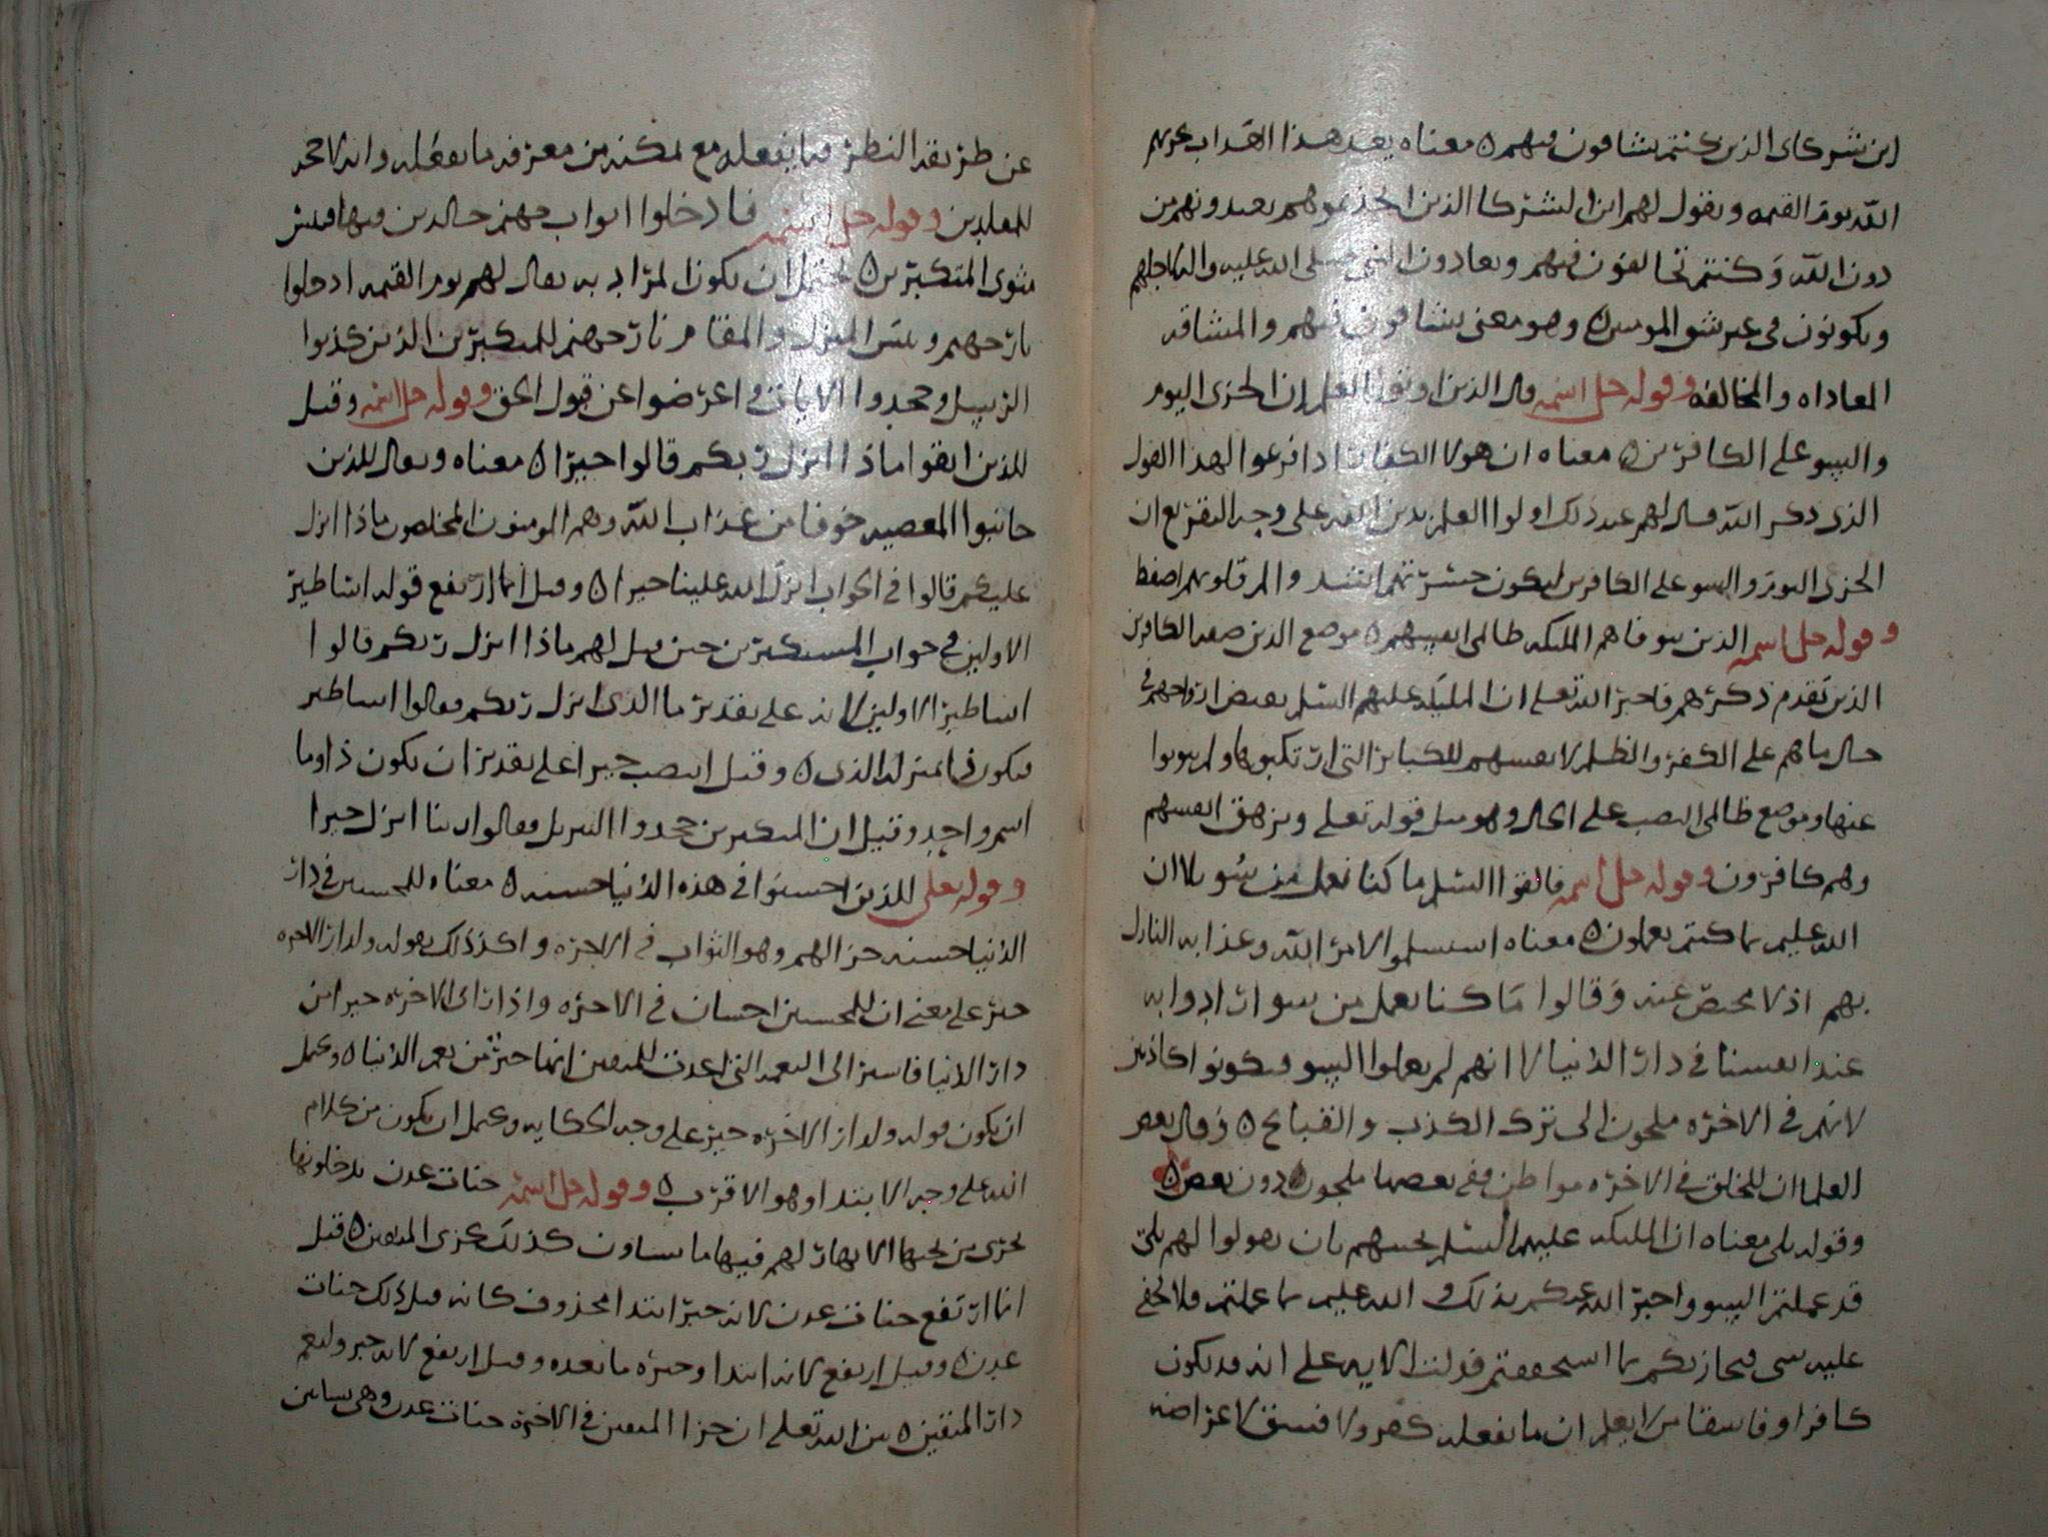 اين شركاى الذين كنتم تشاقون فيهم ٥ معناه بعد هذا العداب يخزيهم
الله يوم القيمه ويقول لهم اين الشركا الذين اتخذتموهم تعبدونهم من
دون الله وكنتم تخالفون فيهم وتعادون النبي صلى الله عليه واله لاجلهم
ويكونون في غير شق المومنين ٥ وهو معنى تشاقون فيهم والمشاقه
المعاداه والمخالفه وقوله جل اسمه قال الذين اوتوا العلم ان الخزى اليوم
والسو على الكافرين ٥ معناه ان هولا الكفار اذا قرعوا بهذا القول
الذى ذكر الله قال لهم عند ذلك اولوا العلم بدين الله على وجه التقريع ان
الخزى اليوم والسو على الكافرين ليكون حسرتهم اشد والم قلوبهم
وقوله جل اسمه الذين تتوفاهم المليكه ظالمى انفسهم ٥ موضع الذين صفه الكافرين
الذين تقدم ذكرهم فاخبر الله تعلى ان المليكه عليهم السلم تقبض ارواحهم في
حال ما هم على الكفر والظلم لانفسهم للكباير التى ارتكبوها ولم يتوبوا
عنها وموضع ظالمى النصب على الحال وهو مثل قوله تعلى وتزهق انفسهم
وهم كافرون وقوله جل اسمه فالقوا السلم ما كنا نعمل من سو بلا ان
الله عليم بما كنتم تعملون ٥ معناه استسلموا لامر الله وعذابه النازل
بهم اذ لا محيص عنه وقالوا ما كنا نعمل من سو ارادوا به
عند انفسنا في دار الدنيا لا انهم لم يعملوا السو فيكونوا كاذبين
لانهم في الاخره ملجون الى ترك الكذب والقبايح ٥ وقال بعض
العلما ان للخلق في الاخره مواطن ففى بعضها ملجون دون بعض ٥
وقوله بلى معناه ان المليكه عليهم السلم تجيبهم بان يقولوا لهم بلى
قد عملتم السو واخبر الله عنكم بذلك والله عليم بما عملتم فلا يخفى
عليه شى فيجازيكم بما استحققتم فدلت الايه على انه قد يكون
كافرا وفاسقا من لا يعلم ان ما يفعله كفر ولا فسق لاعراضه
عن طريقه النظر فيما يفعله مع تمكنه من معرفه ما يفعله وانه لا حجه
للمقلدين وقوله جل اسمه فادخلوا ابواب جهنم خالدين فيها فلبيس
مثوى المتكبرين ٥ يحتمل ان يكون المراد به يقال لهم يوم القيمه ادخلوا
نار جهنم وبيس المنزل والمقام نار جهنم للمتكبرين الذين كذبوا
الرسل وجحدوا الايات واعرضوا عن قبول الحق وقوله جل اسمه وقيل
للذين اتقوا ماذا انزل ربكم قالوا خيرا ٥ معناه ويقال للذين
جانبوا المعصيه خوفا من عذاب الله وهم المومنون المخلصون ماذا انزل
عليكم قالوا في الجواب انزل الله علينا خيرا ٥ وقيل انما ارتفع قوله اساطير
الاولين في جواب المستكبرين حين قيل لهم ماذا انزل ربكم قالوا
اساطير الاولين لانه على تقدير ما الذى انزل ربكم فقالوا اساطير
فيكون فيما بمنزله الذى ٥ وقيل انتصب خيرا على تقدير ان يكون ذا وما
اسم واحد وقيل ان المتكبرين جحدوا التنزيل وقالوا ربنا انزل خيرا
وقوله تعلى للذين احسنوا في هذه الدنيا حسنه ٥ معناه للمحسنين في دار
الدنيا حسنه جزا لهم وهو الثواب في الاخره واكد ذلك بقوله ولدار الاخره
خير على معنى ان للمحسنين احسان في الاخره وان دار الاخره خير من
دار الدنيا فاشير الى النعمه التى اعدت للمتقين انها خير من نعم الدنيا ٥ ويحتمل
ان يكون قوله ولدار الاخره خير على وجه الحكايه ويحتمل ان يكون من كلام
الله على وجه الابتدا وهو الاقرب ٥ وقوله جل اسمه جنات عدن يدخلونها
تجرى من تحتها الانهار لهم فيها ما يشاون كذلك يجزى الله المتقين ٥ قيل
انما ارتفع جنات عدن لانه خبر ابتدا محذوف كانه قيل ذلك جنات
عدن ٥ وقيل ارتفع لانه ابتدا وخبره ما بعده وقيل ارتفع لانه خبر ولنعم
دار المتقين ٥ بين الله تعلى ان جزا المتقين في الاخره جنات عدن وهى بساتين